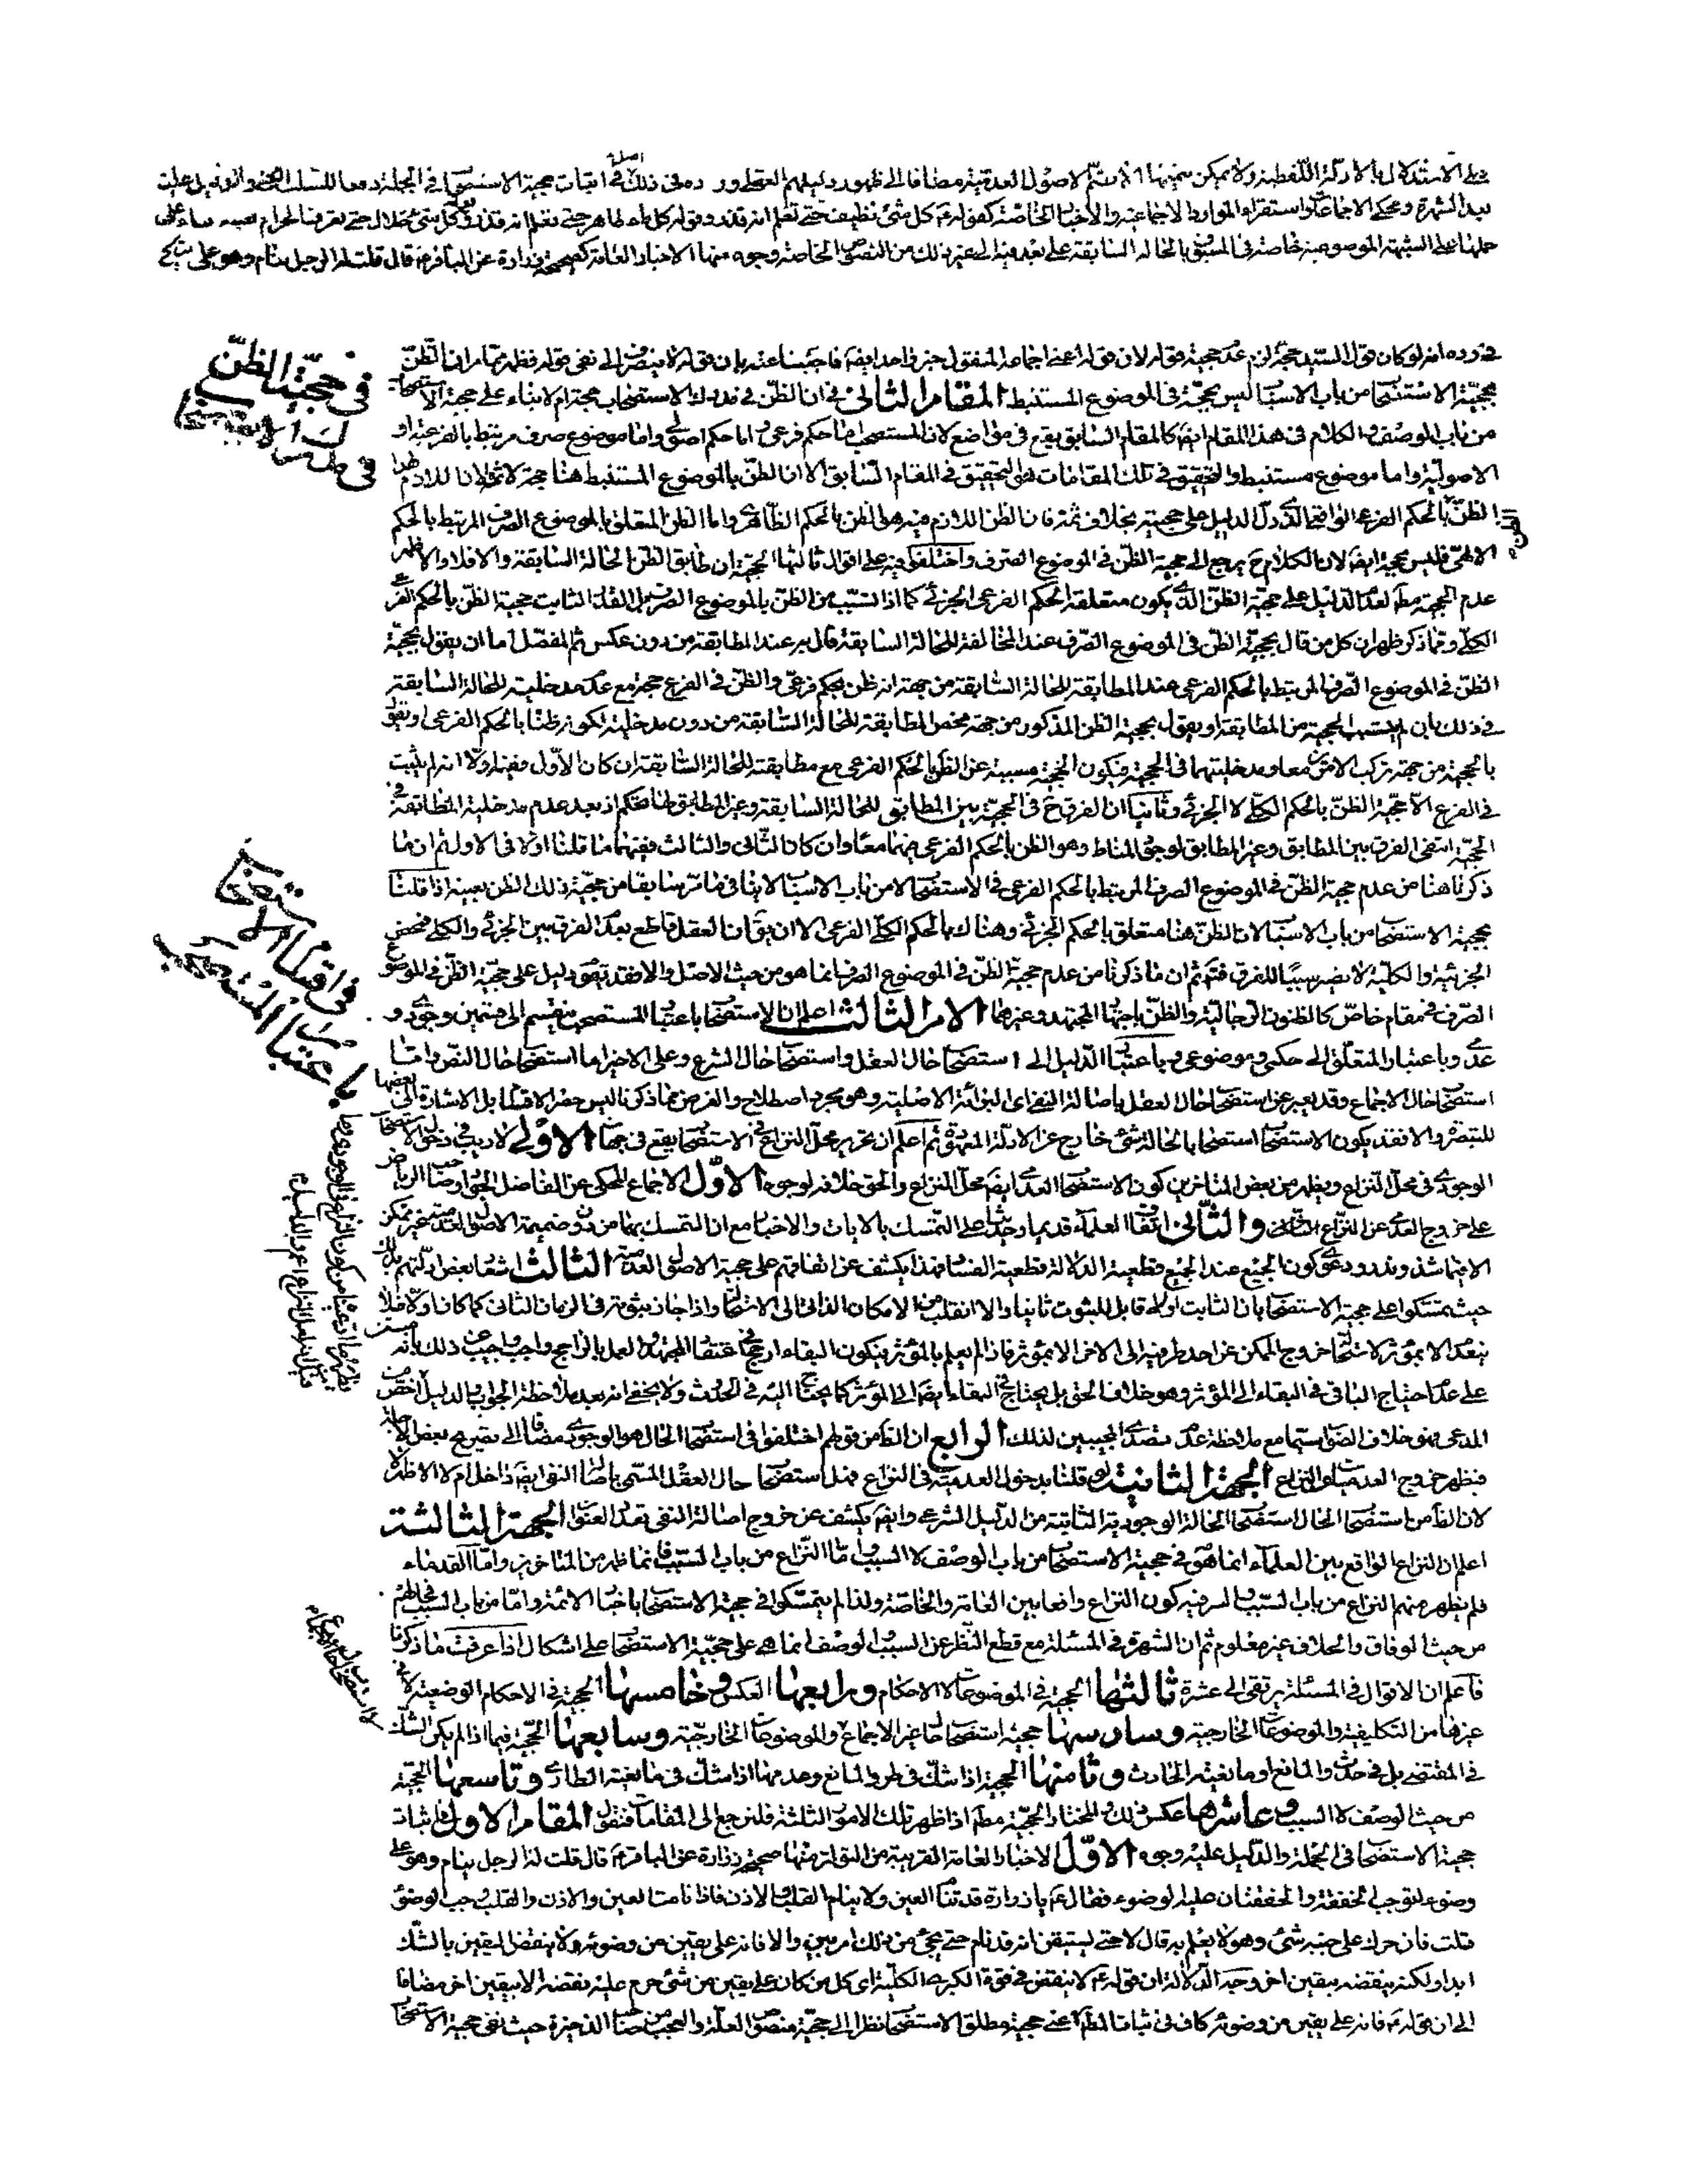 على الاستدلال بالادلة اللفظية ولا يمكن تتميمها الاصول العدمية مضافا الى ظهور دليلهم العقلى و ده فى ذلك فى اثبات حجية الاستصحاب فى الجملة
بعد الشهرة ومحكى الاجماعات واستقراء الموارد الاجماعية والاخبار الخاصة كقوله ع كل شئ نظيف حتى تعلم انه قذر وقوله كل ماء طاهر حتى تعلم انه قذر وكل شئ حلال حتى تعرف الحرام بعينه بناء على
حملها على الشبهة الموضوعية خاصة فى المسبوق بالحالة السابقة الى غير ذلك من النصوص الخاصة وجوه منها الاخبار العامة كصحيحة زرارة عن الباقر ع قال قلت له الرجل ينام وهو على
فى رده انه لو كان قول السيد حجة لزم عدم حجية قوله لان قوله اعنى اجماعه المنقول خبر واحد ايضا فاجبنا عنه بان قوله لا ينصرف الى نفى قوله فظهر مما مر ان الظن
بحجية الاستصحاب من باب الاسباب ليس بحجة فى الموضوع المستنبط المقام الثانى فى ان الظن فى الاستصحاب حجة ام لا بناء على حجية الاستصحاب
من باب الوصف والكلام فى هذا المقام ايضا كالمقام السابق يقع فى مواضع لان المستصحب اما حكم فرعى او اما حكم اصولى واما موضوع صرف مرتبط بالفرعية او
الاصولية واما موضوع مستنبط والتحقيق فى تلك المقامات هو التحقيق فى المقام السابق الا ان الظن بالموضوع المستنبط هنا حجة لا ثمة لان اللازم
الظن بالحكم الفرعى الواقعى الذى دل الدليل على حجيته بخلاف ثمة فان الظن اللازم منه هو الظن بالحكم الظاهرى واما الظن المتعلق بالموضوع الصرف المرتبط بالحكم
فليس بحجة ايضا لان الكلام ح يرجع الى حجية الظن فى الموضوع الصرف واختلفوا فيه على اقوال ثالثها الحجية ان طابق الظن الحالة السابقة والا فلا والاظهر
عدم الحجية مط لعدم الدليل على حجية الظن الذى يكون متعلقه الحكم الفرعى الجزئى كما اذا تسبب من الظن بالموضوع الصرف بل القدر الثابت حجية الظن بالحكم الفرعى
الكلى ومما ذكر ظهر ان كل من قال بحجية الظن فى الموضوع الصرف عند المخالفة للحالة السابقة قال به عند المطابقة من دون عكس ثم المفصل اما ان يقول بحجية
الظن فى الموضوع الصرف المرتبط بالحكم الفرعى عند المطابقة للحالة السابقة من جهة انه ظن بحكم فرعى والظن فى الفرع حجة مع عدم مدخلية للحالة السابقة
فى ذلك بان لم يتسبب الحجية من المطابقة او يقول بحجية الظن المذكور من جهة محض المطابقة للحالة السابقة من دون مدخلية لكونه ظنا بالحكم الفرعى او يقول
بالحجية من جهة تركب الامرين معا ومدخليتهما فى الحجية فيكون الحجية مسببة عن الظن بالحكم الفرعى مع مطابقته للحالة السابقة ان كان الاول ففيه اولا انه لم يثبت
فى الفرع الا حجية الظن بالحكم الكلى لا الجزئى وثانيا ان الفرق ح فى الحجية بين المطابق للحالة السابقة وغير المطابق لها تحكم اذ بعد عدم مدخلية المطابقة فى
الحجية انتفى الفرق بين المطابق وغير المطابق لوجود المناط وهو الظن بالحكم الفرعى فيهما معا وان كان الثانى والثالث ففيهما ما قلنا اولا فى الاول ثم ان ما
ذكرنا هنا من عدم حجية الظن فى الموضوع الصرف المرتبط بالحكم الفرعى فى الاستصحاب لا من باب الاسباب لا ينافى ما مر سابقا من حجية ذلك الظن بعينه اذا قلنا
بحجية الاستصحاب من باب الاسباب لان الظن هنا متعلق بالحكم الجزئى وهناك بالحكم الكلى الفرعى الا ان يق ان العقل قاطع بعدم الفرق بين الجزئى والكلى فمحض
الجزئية والكلية لا يصير سببا للفرق فتم ثم ان ما ذكرنا من عدم حجية الظن فى الموضوع الصرف انما هو من حيث الاصل والا فقد يقوم دليل على حجية الظن فى الموضوع
الصرف فى مقام خاص كالظنون الرجالية والظن باجتهاد المجتهد وغيرها الامر الثالث اعلم ان الاستصحاب باعتبار المستصحب ينقسم الى قسمين وجودى و
عدمى وباعتبار المتعلق الى حكمى وموضوعى وباعتبار الدليل الى استصحاب حال العقل واستصحاب حال الشرع وعلى الاخير اما استصحاب حال النص واما
استصحاب حال الاجماع وقد يعبر عن استصحاب حال العقل باصالة النفى اى البرائة الاصلية وهو مجرد اصطلاح والغرض مما ذكرنا ليس حصر الاقسام بل الاشارة الى بعضها
للتبصرة والا فقد يكون الاستصحاب استصحابا بالحالة شئ خارج عن الادلة المعهودة ثم اعلم ان تحرير محل النزاع فى الاستصحاب يقع فى جهات الاولى لا ريب فى دخول الاستصحاب
الوجودى فى محل النزاع ويظهر من بعض المتاخرين كون الاستصحاب العدمى ايضا محل النزاع والحق خلافه لوجوه الاول الاجماع المحكى عن الفاضل وصاحب الرياض
على خروج العدمى عن النزاع والثانى اتفاق العلماء قديما وحديثا على التمسك بالايات والاخبار مع ان التمسك بهما من دون ضميمة الاصول العدمية غير ممكن
الا فيما شذ وندر ودعوى كون الجميع عند الجميع قطعية الدلالة قطعية الفساد فهذا يكشف عن اتفاقهم على حجية الاصول العدمية الثالث
حيث تمسكوا على حجية الاستصحاب بان الثابت اولا قابل للثبوت ثانيا والا لانقلب من الامكان الذاتى الى الاستحالة واذا جاز ثبوته فى الزمان الثانى كما كان اولا فلا
ينعدم الا بمؤثر لاستحالة خروج الممكن عن احد طرفيه الى الاخر الا بمؤثر فاذا لم يعلم بالمؤثر فيكون البقاء ارجح فى اعتقاد المجتهد والعمل بالراجح واجب واجيب عن ذلك بانه
على عدم احتياج الباقى فى البقاء الى المؤثر وهو خلاف الحق بل يحتاج فى البقاء ايضا الى المؤثر كما يحتاج اليه فى الحدوث ولا يخفى انه بعد ملاحظة الجواب والدليل اخص من
المدعى فهو خلاف الصواب سيما مع ملاحظة عدم تصدى المجيبين لذلك الرابع ان الظاهر من قولهم اختلفوا فى استصحاب الحال هو الوجودى مضافا الى تصريح بعض الاجلة
فيظهر خروج العدميات عن النزاع الجهة الثانية لو قلنا بدخول العدمية فى النزاع فهل استصحاب حال العقل المسمى باصالة النفى ايضا داخل ام لا الاظهر لا
لان الظاهر من استصحاب الحال استصحاب الحالة الوجودية الثابتة من الدليل الشرعى وايضا يكشف عن خروج اصالة النفى تعدد العنوان الجهة الثالثة
اعلم ان النزاع الواقع بين العلماء انما هو فى حجية الاستصحاب من باب الوصف لا السبب واما النزاع من باب السبب فانما ظهر من المتاخرين واما القدماء
فلم يظهر منهم النزاع من باب السبب والسر فيه كون النزاع واقعا بين العامة والخاصة ولذا لم يتمسكوا فى حجية الاستصحاب باخبار الائمة واما من باب السبب فحالهم
من حيث الوفاق والخلاف غير معلوم ثم ان الشهرة فى المسئلة مع قطع النظر عن السبب والوصف انما هى على حجية الاستصحاب على اشكال اذا عرفت ما ذكرنا
فاعلم ان الاقوال فى المسئلة يرتقى الى عشرة ثالثها الحجية فى الموضوعات لا الاحكام ورابعها العكس وخامسها الحجية فى الاحكام الوضعية لا
غيرها من التكليفية والموضوعات الخارجية وسادسها حجية استصحاب حال غير الاجماع والموضوعات الخارجية وسابعها الحجية فيما اذا لم يكن الشك
فى المقتضى بل فى حدوث المانع او مانعية الحادث وثامنها الحجية اذا شك فى طرو المانع وعدمها اذا شك فى مانعية الطارى وتاسعها الحجية
من حيث الوصف لا السبب وعاشرها عكس ذلك والمختار الحجية مط اذا ظهر تلك الامور الثلثة فلنرجع الى المقامات فنقول المقام الاول فى اثبات
حجية الاستصحاب فى الجملة والدليل عليه وجوه الاول الاخبار العامة القريبة من التواتر منها صحيحة زرارة عن الباقر ع قال قلت له الرجل ينام وهو على
وضوء اتوجب الخفقة والخفقتان عليه الوضوء فقال ع يا زرارة قد تنام العين ولا ينام القلب والاذن فاذا نامت العين والاذن والقلب وجب الوضوء
قلت فان حرك على جنبه شئ وهو لا يعلم به قال لا حتى يستيقن انه قد نام حتى يجئ من ذلك امر بين والا فانه على يقين من وضوئه ولا ينقض اليقين بالشك
ابدا ولكنه ينقضه بيقين اخر وجه الدلالة ان قوله ع لا ينقض فى قوة الكبرى الكلية اى كل من كان على يقين من شئ حرم عليه نقضه الا بيقين اخر مضافا
الى ان قوله ع فانه على يقين من وضوئه كاف فى اثبات المط اعنى حجية مطلق الاستصحاب نظرا الى حجية منصوص العلة والعجب من صاحب الذخيرة حيث نفى حجية الاستصحاب
فى حجية الظن
فى اقسام الاستصحاب
باعتبار المستصحب